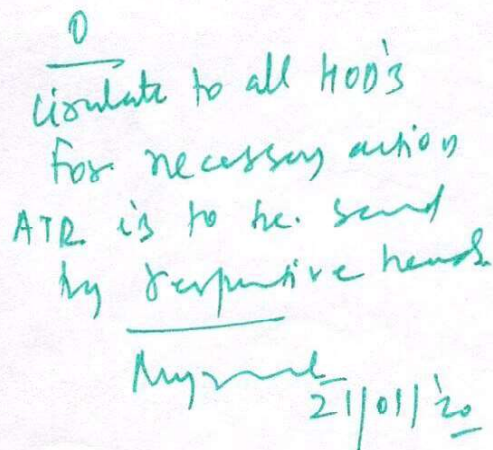 0
Circulate to all HOD's
For necessary action
ATR is to be send
by respective heads
21/01/'20